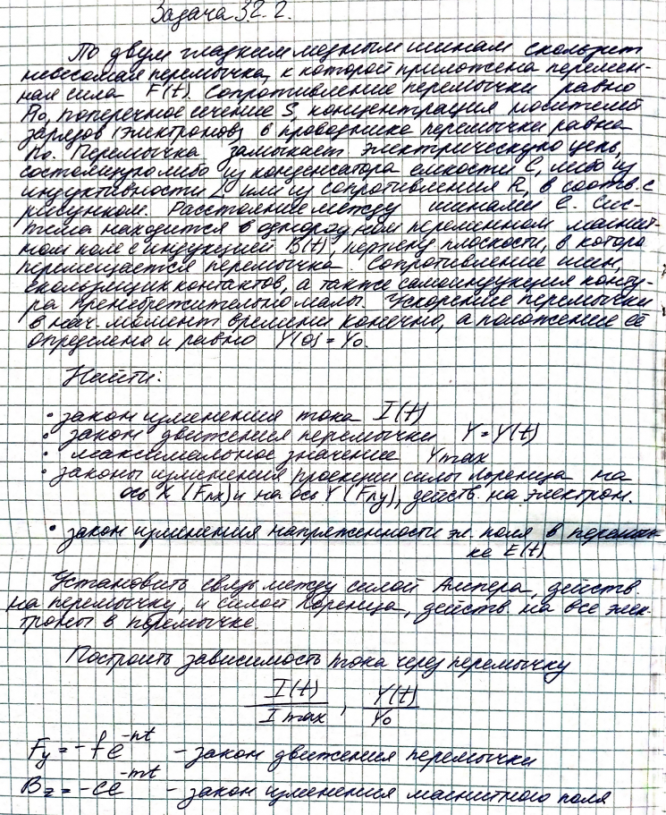 Задача 3.2.2.
По двум гладким медным шинам скользит
невесомая перемычка, к которой приложена перемен-
ная сила F(t). Сопротивление перемычки равно
R₀, поперечное сечение S, концентрация носителей
зарядов (электронов) в проводнике перемычки равна
n₀. Перемычка замыкает электрическую цепь,
состоящую либо из конденсатора емкости C, либо из
индуктивности L или из сопротивления R, в соотв. с
рисунком. Расстояние между шинами l. Сис-
тема находится в однородном переменном магнит-
ном поле с индукцией B(t), перпенд. плоскости, в которой
перемещается перемычка. Сопротивление шин,
скользящих контактов, а также самоиндукция конту-
ра пренебрежительно малы. Ускорение перемычки
в нач. момент времени конечно, а положение её
определено и равно Y(0) = Y₀.
Найти:
• закон изменения тока I(t)
• закон движения перемычки Y = Y(t)
• максимальное значение Ymax
• законы изменения проекции силы Лоренца на
ось X (Fлx) и на ось Y (Fлy), действ. на электрон.
• закон изменения напряженности эл. поля в перемыч-
ке E(t).
Установить связь между силой Ампера, действ.
на перемычку, и силой Лоренца, действ. на все элек-
троны в перемычке.
Построить зависимость тока через перемычку
I(t)/I max , Y(t)/Y₀
Fy = -fe^-nt - закон движения перемычки
Bz = -ce^-mt - закон изменения магнитного поля